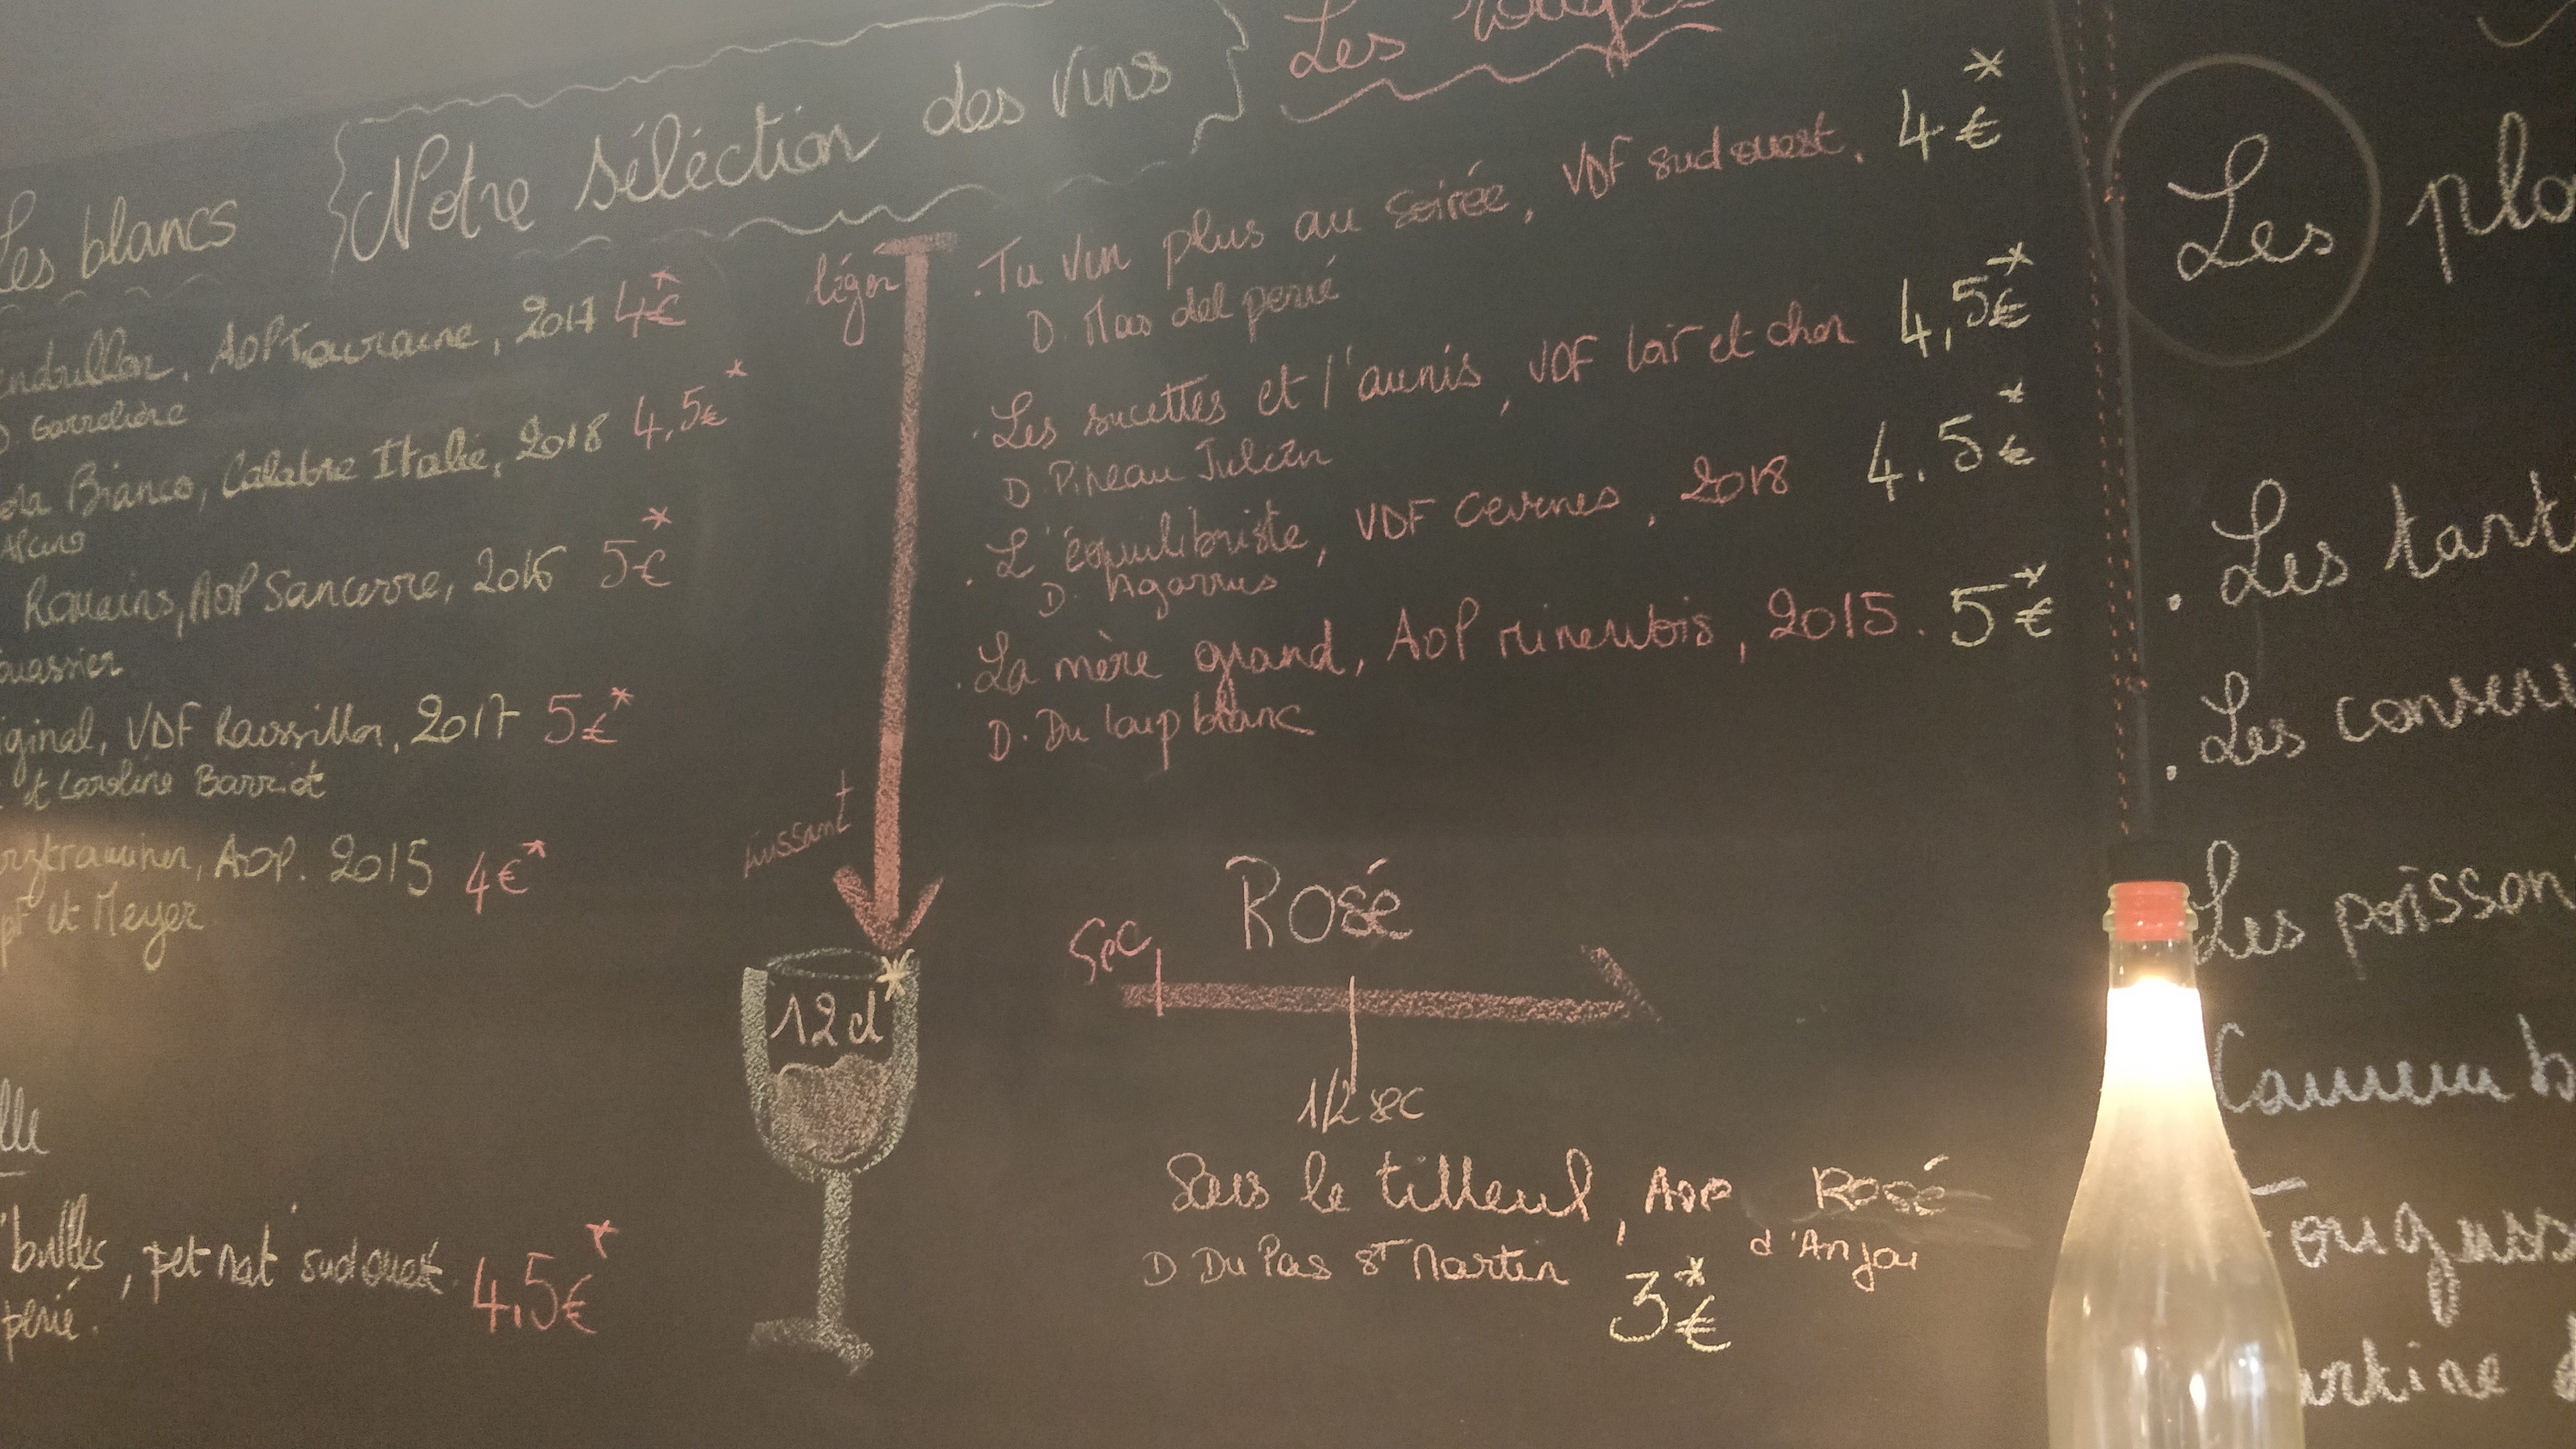 Notre séléction des vins
Les blancs
endrillon, AOP Touraine, 2017 4€*
D. Garrelière
Bianco, Calabre Italie, 2018 4,5€*
Romains, AOP Sancerre, 2016 5€*
iginal, VDF Roussillon, 2017 5€*
et Caroline Barriot
AOP. 2015 4€*
et Meyer
lle
bulles, pet nat sud ouest. 4,5€*
perié.
léger
puissant
12cl
*
Les rouges
. Tu vin plus au soirée, VDF sud ouest. 4€*
D. Mas del perié
. Les sucettes et l'aunis, VDF loir et cher 4,5€*
D. Pineau Julien
. L'équilibriste, VDF cevenes, 2018 4.5€*
D. Agarrus
. La mère grand, AOP minervois, 2015. 5€*
D. Du loup blanc
Rosé
sec
1/2 sec
Sous le tilleul, AOP Rosé
d'Anjou
D Du Pas St Martin
3€*
Les pla
. Les tart
. Les conserv
Les poisson
Camemb
artine